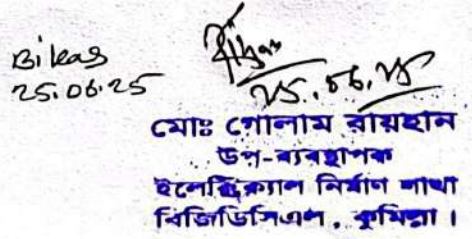 Bikas
25.06.25
25.06.25
মোঃ গোলাম রায়হান
উপ-ব্যবস্থাপক
ইলেক্ট্রিক্যাল নির্মাণ শাখা
বিজিডিসিএল, কুমিল্লা।